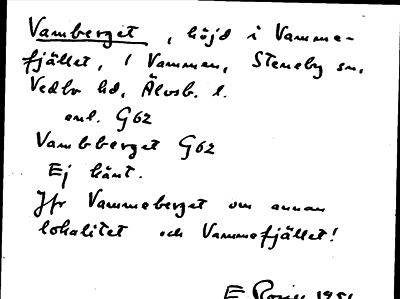 Vamberget, höjd i Vamme-
fjället, i Vammen, Steneby sn,
Vedbo hd, Älvsb. l.
enl. G62
Vambberget G62
Ej känt.
Jfr Vammeberget om annan
lokalitet och Vammefjället!
E 1951